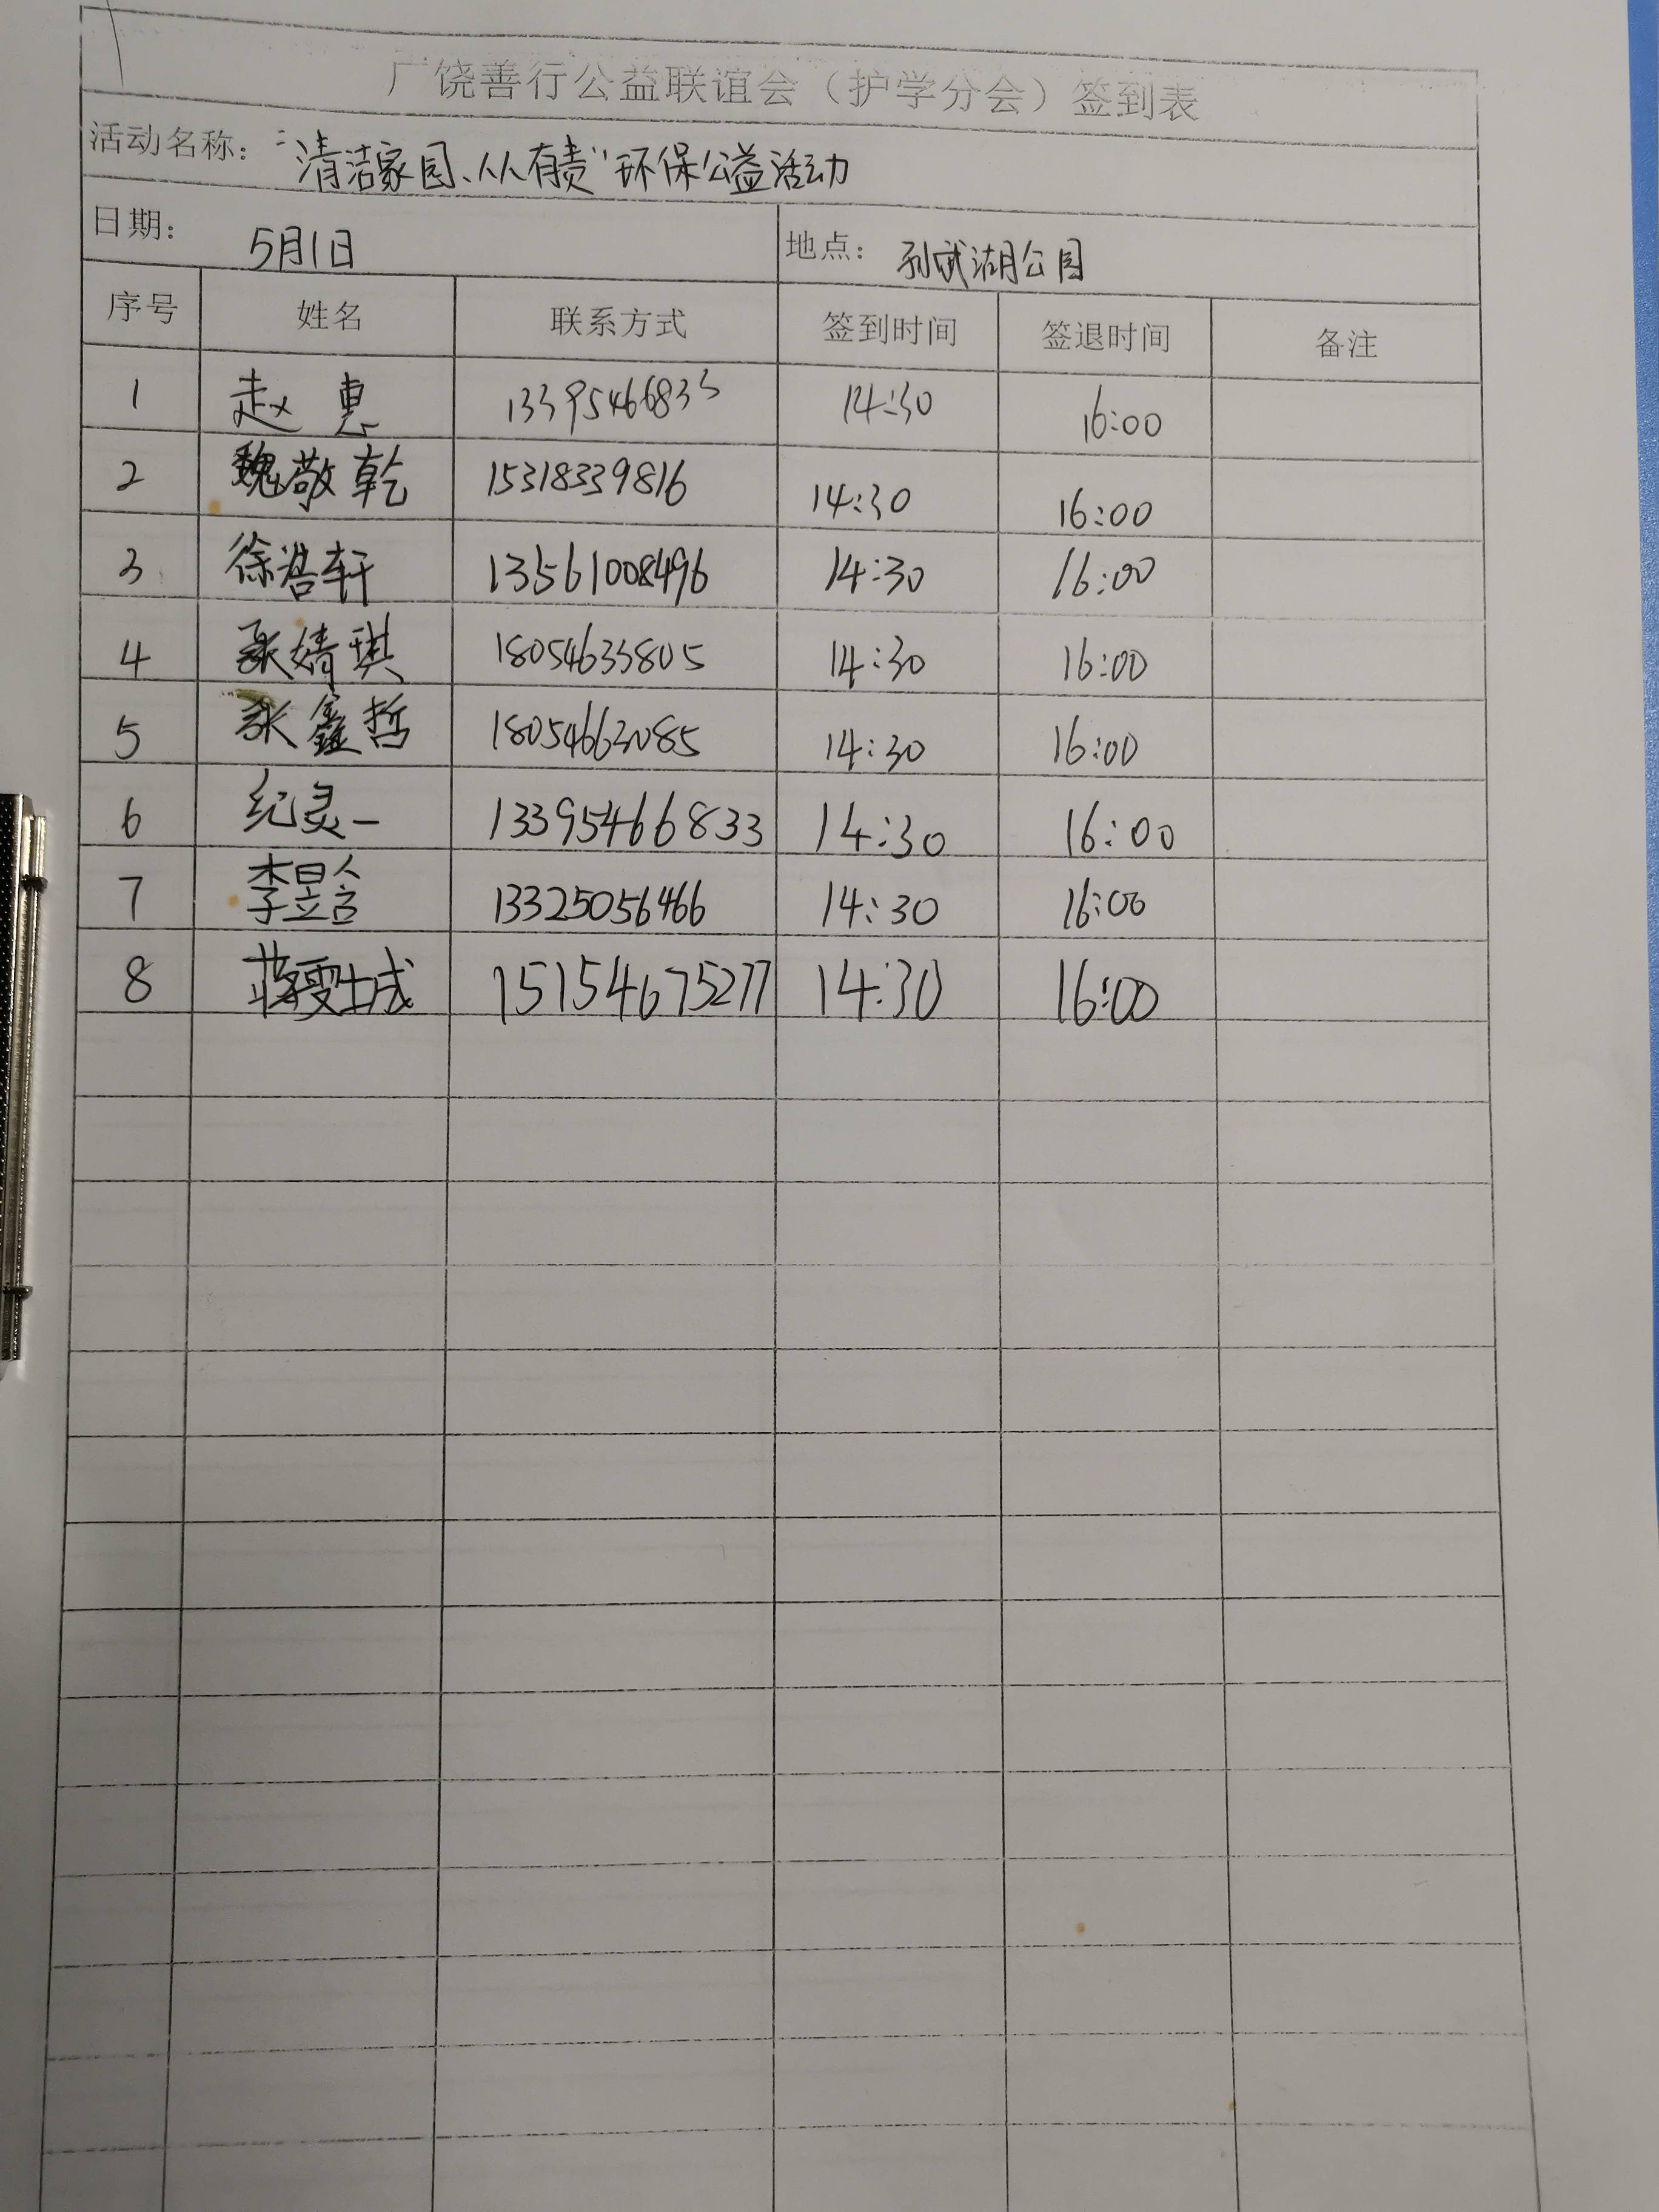 广饶善行公益联谊会（护学分会）签到表
活动名称："清洁家园、人人有责"环保公益活动
日期： 5月1日 地点： 孙武湖公园
序号 姓名 联系方式 签到时间 签退时间 备注
1 赵惠 13395466833 14:30 16:00
2 魏敬乾 15318339816 14:30 16:00
3 徐浩轩 13561008496 14:30 16:00
4 张婧琪 18054633805 14:30 16:00
5 张鑫哲 18054663085 14:30 16:00
6 纪灵一 13395466833 14:30 16:00
7 李昱含 13325056466 14:30 16:00
8 15154675277 14:30 16:00